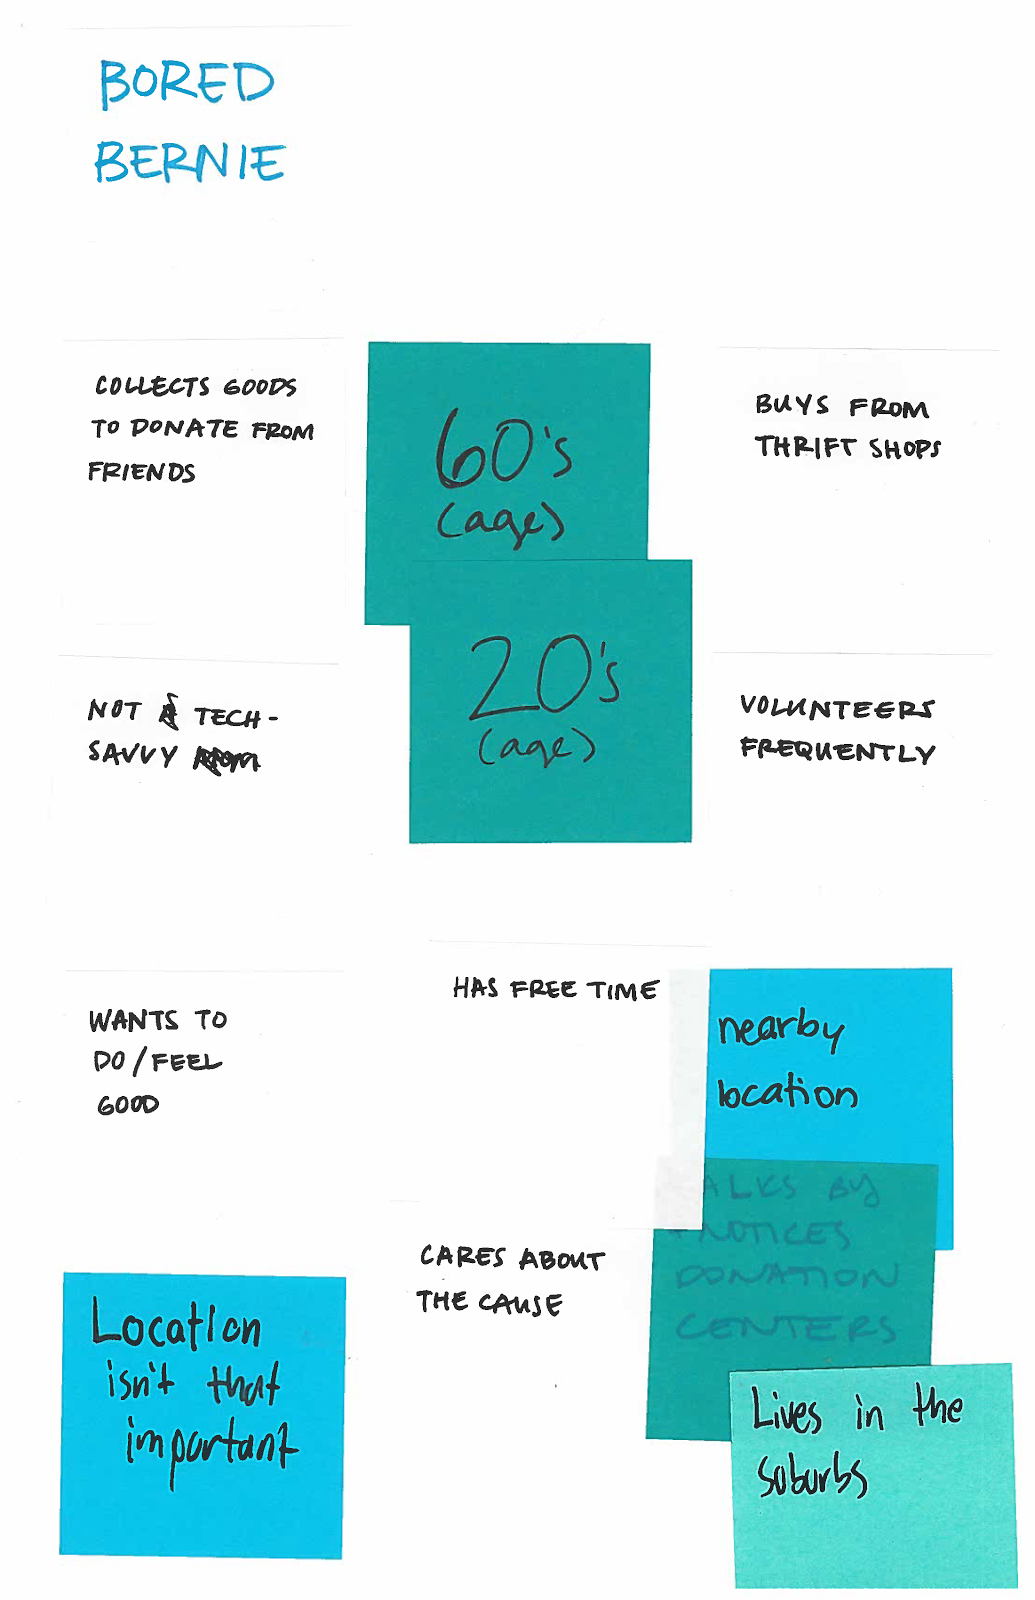 BORED
BERNIE
COLLECTS GOODS
TO DONATE FROM
FRIENDS
60's
(age)
BUYS FROM
THRIFT SHOPS
NOT TECH-
SAVVY
20's
(age)
VOLUNTEERS
FREQUENTLY
WANTS TO
DO/FEEL
GOOD
HAS FREE TIME
nearby
location
ALKS BY
+ NOTICES
DONATION
CENTERS
CARES ABOUT
THE CAUSE
Location
isn't that
important
Lives in the
suburbs